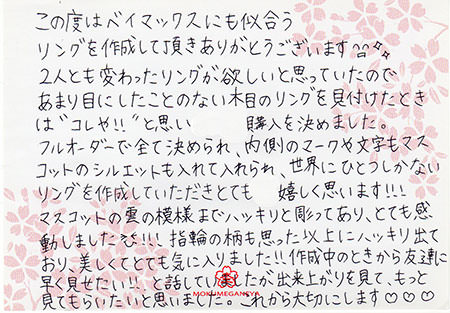 この度はベイマックスにも似合う
リングを作成して頂きありがとうございます
2人とも変わったリングが欲しいと思っていたので
あまり目にしたことのない木目のリングを見付けたとき
は"コレや!!"と思い 購入を決めました。
フルオーダーで全て決められ、内側のマークや文字もマス
コットのシルエットも入れて入れられ、世界にひとつしかない
リングを作成していただきとても 嬉しく思います!!!
マスコットの裏の模様までハッキリと彫ってあり、とても感
動しました!!! 指輪の柄も思った以上にハッキリ出て
おり、美しくてとても気に入りました!! 作成中のときから友達に
早く見せたい!! と話していましたが出来上がりを見て、もっと
見てもらいたいと思いました。これから大切にします♡♡♡
MOKUMEGANEYA